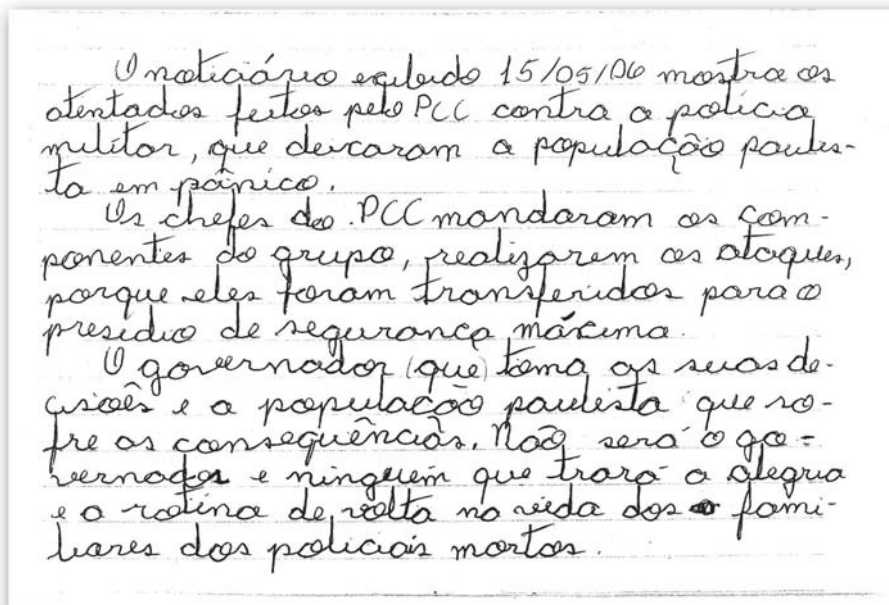 O noticiário exibido 15/05/06 mostra os
atentados feitos pelo PCC contra a polícia
militar, que deixaram a população paulis-
ta em pânico.
Os chefes do PCC mandaram os com-
ponentes do grupo, realizarem os ataques,
porque eles foram transferidos para o
presídio de segurança máxima.
O governador (que) toma as suas de-
cisoês e a população paulista que so-
fre as consequências. Não será o go-
vernador e ninguém que trará a alegria
e a rotina de volta na vida dos fami-
liares dos policiais mortos.